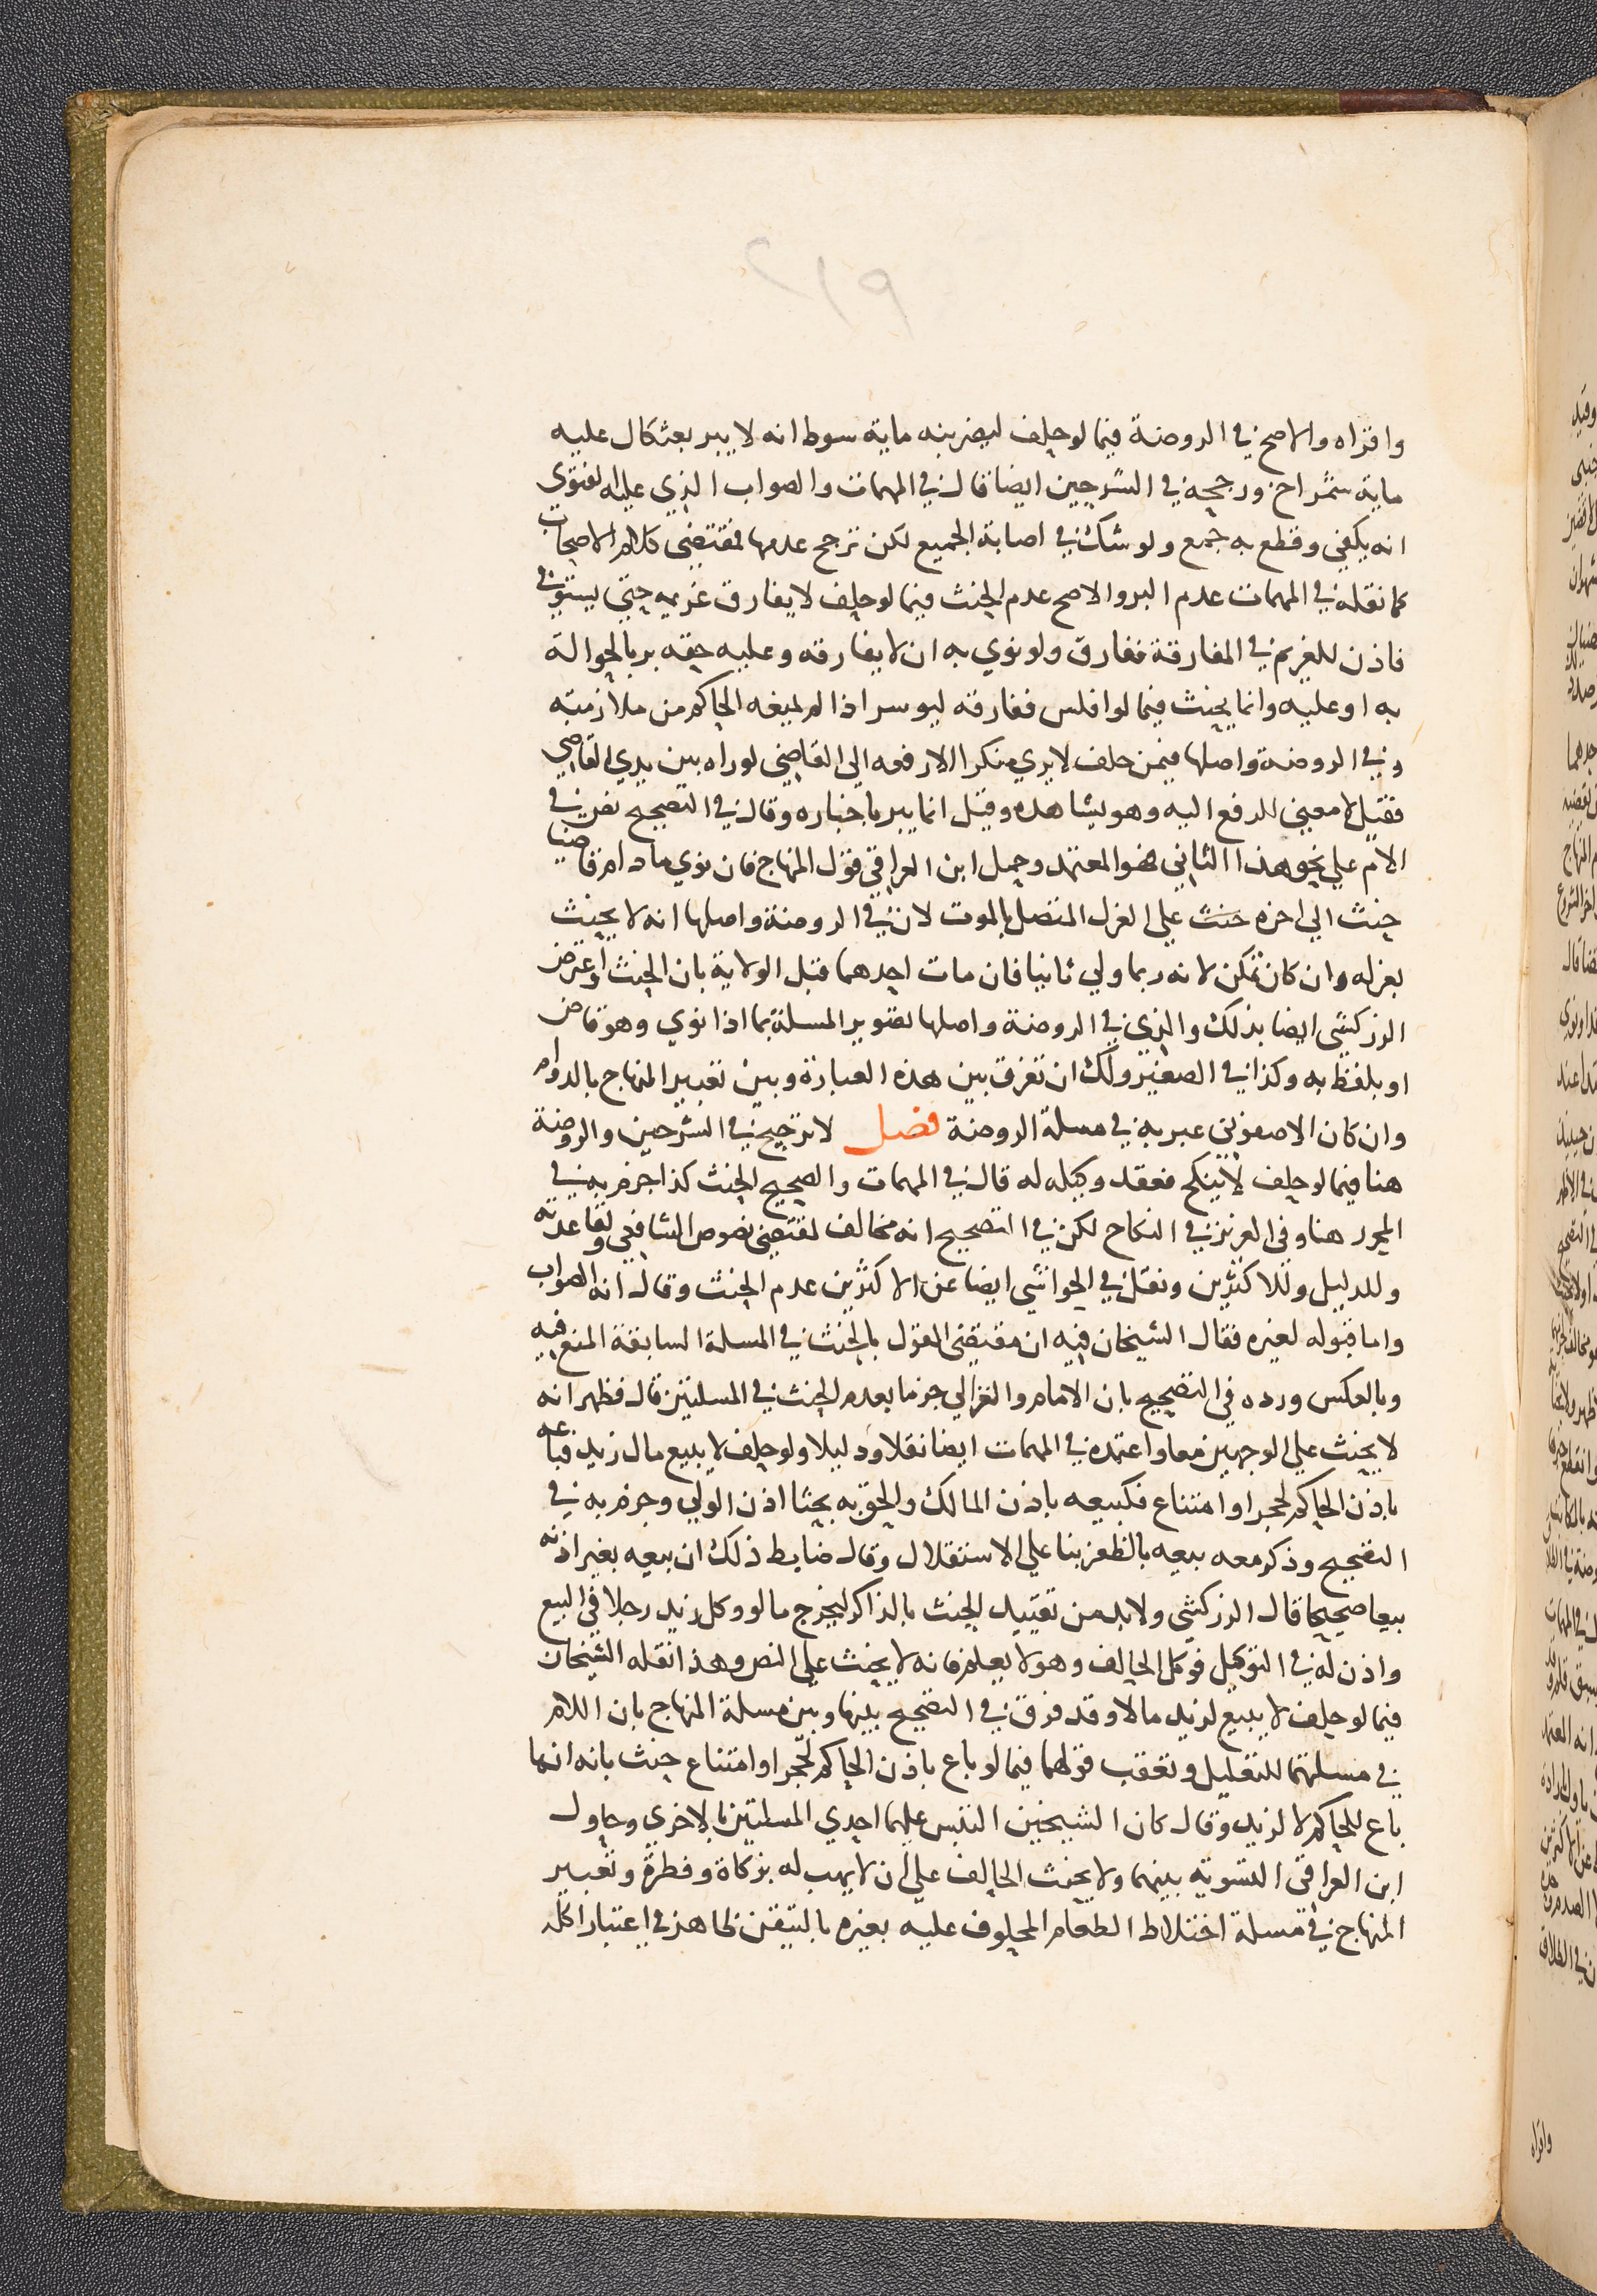 ٢١٩
واقراه والاصح في الروضة فيما لو حلف ليضربنه ماية سوط انه لا يبر بعثكال عليه
ماية شمراخ ورجحه في الشرحين ايضا قال في المهمات والصواب الذي عليه الفتوي
انه يكفي وقطع به جمع ولو شك في اصابة الجميع لكن ترجح عدمها فمقتضي كلام الاصحاب
كما نقله في المهمات عدم البر والاصح عدم الحنث فيما لو حلف لا يفارق غريمه حتي يستوفي
فاذن للغريم في المفارقة ففارق ولو نوي به ان لا يفارقه وعليه حقه بر بالحوالة
به او عليه وانما يحنث فيما لو افلس ففارقه ليوسر اذا لم يمنعه الحاكم من ملازمته
وفي الروضة واصلها فيمن حلف لا يري منكرا الا رفعه الي القاضي لو راه بين يدي القاضي
فقيل لا معني للرفع اليه وهو يشاهده وقيل انما يبر باخباره وقال في التصحيح نص في
الام علي نحو هذا الثاني فهو المعتمد وحمل ابن العراقي قول المنهاج فان نوي ما دام قاضيا
حنث الي اخره حنث علي العزل المتصل بالموت لان في الروضة واصلها انه لا يحنث
بعزله وان كان تمكن لانه ربما ولي ثانيا فان مات احدهما قبل الولاية بان الحنث واعترض
الزركشي ايضا بذلك والذي في الروضة واصلها تصوير المسلة بما اذا نوي وهو قاض
او بلفظ به وكذا في الصغير ولك ان تفرق بين هذه العبارة وبين تعبير المنهاج بالدوام
وان كان الاصفوني عبر به في مسلة الروضة فصل لا ترجيح في الشرحين والروضة
هنا فيما لو حلف لا ينكح فعقد وكيله له قال في المهمات والصحيح الحنث كذا جزم به في
المحرر هنا وفي العزيز في النكاح لكن في التصحيح انه مخالف لمقتضي نصوص الشافعي ولقاعدته
وللدليل وللاكثرين ونقل في الحواشي ايضا عن الاكثرين عدم الحنث وقال انه الصواب
واما قبوله لغيره فقال الشيخان فيه ان مقتضي القول بالحنث في المسلة السابقة المنع فيه
وبالعكس ورده في التصحيح بان الامام والغزالي جزما بعدم الحنث في المسلتين قال فظهر انه
لا يحنث علي الوجهين معا واعتمده في المهمات ايضا نقلا ودليلا ولو حلف لا يبيع مال زيد فباعه
باذن الحاكم لحجر او امتناع فكبيعه باذن المالك والحق به بحثا اذن الولي وجزم به في
التصحيح وذكر معه بيعه بالظفر بنا علي الاستقلال وقال ضابط ذلك ان بيعه بغير اذنه
بيعا صحيحا قال الزركشي ولابد من تقييد الحنث بالذاكر ليخرج ما لو وكل زيد رجلا في البيع
واذن له في التوكيل فوكل الحالف وهو لا يعلم فانه لا يحنث علي النص وهذا نقله الشيخان
فيما لو حلف لا يبيع لزيد مالا وقد فرق في التصحيح بينها وبين مسلة المنهاج بان اللام
في مسلتهما للتعليل وتعقب قولهما فيما لو باع باذن الحاكم لحجر او امتناع حنث بانه انما
باع للحاكم لا لزيد وقال كان الشيخين التبس عليهما احدي المسلتين بالاخري وحاول
ابن العراقي التسوية بينهما ولا يحنث الحالف علي ان لا يهب له بزكاة وفطرة وتعبير
المنهاج في مسلة اختلاط الطعام المحلوف عليه بغيره بالتيقن ظاهر في اعتبار اكله